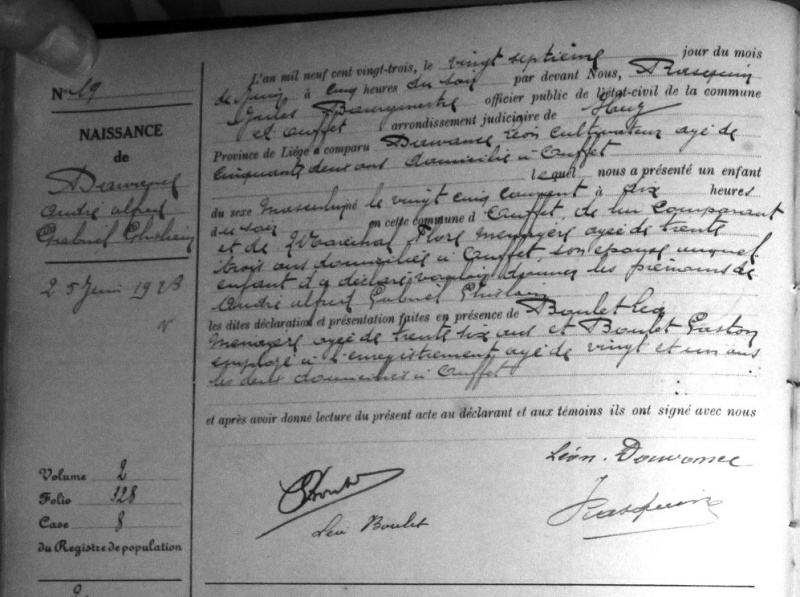 N° 19
NAISSANCE
de
Dawance
André alfred
Gabriel Ghislain
25 Juin 1923
L'an mil neuf cent vingt-trois, le vingt septième jour du mois
de Juin à Cinq heures du soir par devant Nous, Rasquin
Jules Bourgmestre officier public de l'état-civil de la commune
et ouffet arrondissement judiciaire de Huy
Province de Liége a comparu Dawance Léon Cultivateur agé de
Cinquante deux ans domicilié à Ouffet
lequel nous a présenté un enfant
du sexe Masculin né le vingt cinq courant à dix heures
du soir en cette commune d'Ouffet, de lui Comparant
et de Maréchal Flore menagère agée de trente
trois ans domiciliée à Ouffet, son epouse auquel
enfant il a déclaré vouloir donner les prénoms de
André alfred Gabriel Ghislain
les dites déclaration et présentation faites en présence de Boulet
agé de trente six ans et Boulet Gaston
employé à l'enregistrement agé de vingt et un ans
les deux domiciliés à Ouffet
et après avoir donné lecture du présent acte au déclarant et aux témoins ils ont signé avec nous
Léon Dawance
Boulet
Rasquin
Volume 2
Folio 128
Case 8
du Registre de population